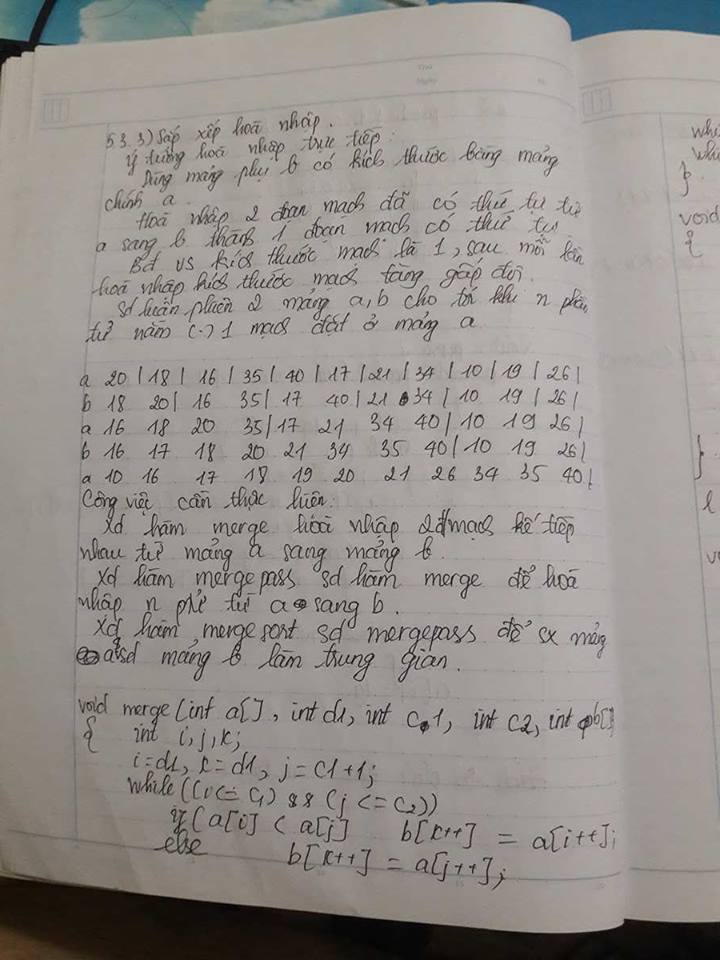 Thứ
Ngày
5.3.3) Sắp xếp hoà nhập.
Ý tưởng hoà nhập trực tiếp:
Dùng mảng phụ b có kích thước bằng mảng
chính a.
Hoà nhập 2 đoạn mạch đã có thứ tự từ
a sang b thành 1 đoạn mạch có thứ tự.
Bđ vs kích thước mạch là 1, sau mỗi lần
hoà nhập kích thước mạch tăng gấp đôi.
Sd luân phiên 2 mảng a, b cho tới khi n phần
tử nằm (.) 1 mạch đặt ở mảng a
a 20 | 18 | 16 | 35 | 40 | 17 | 21 | 34 | 10 | 19 | 26 |
b 18 20 | 16 35 | 17 40 | 21 34 | 10 19 | 26 |
a 16 18 20 35 | 17 21 34 40 | 10 19 26 |
b 16 17 18 20 21 34 35 40 | 10 19 26 |
a 10 16 17 18 19 20 21 26 34 35 40 |
Công việc cần thực hiện:
Xd hàm merge hoà nhập 2 mạch kế tiếp
nhau từ mảng a sang mảng b.
Xd hàm mergepass sd hàm merge để hoà
nhập n ptử từ a sang b.
Xd hàm mergesort sd mergepass để sx mảng
a sd mảng b làm trung gian.
void merge (int a[], int d1, int c1, int c2, int b[]
{ int i, j, k;
i=d1, k=d1, j=c1+1;
while ((i<= c1) && (j <= c2))
if (a[i] < a[j] b[k++] = a[i++];
else b[k++] = a[j++];
whi
whi
}
void
{
}